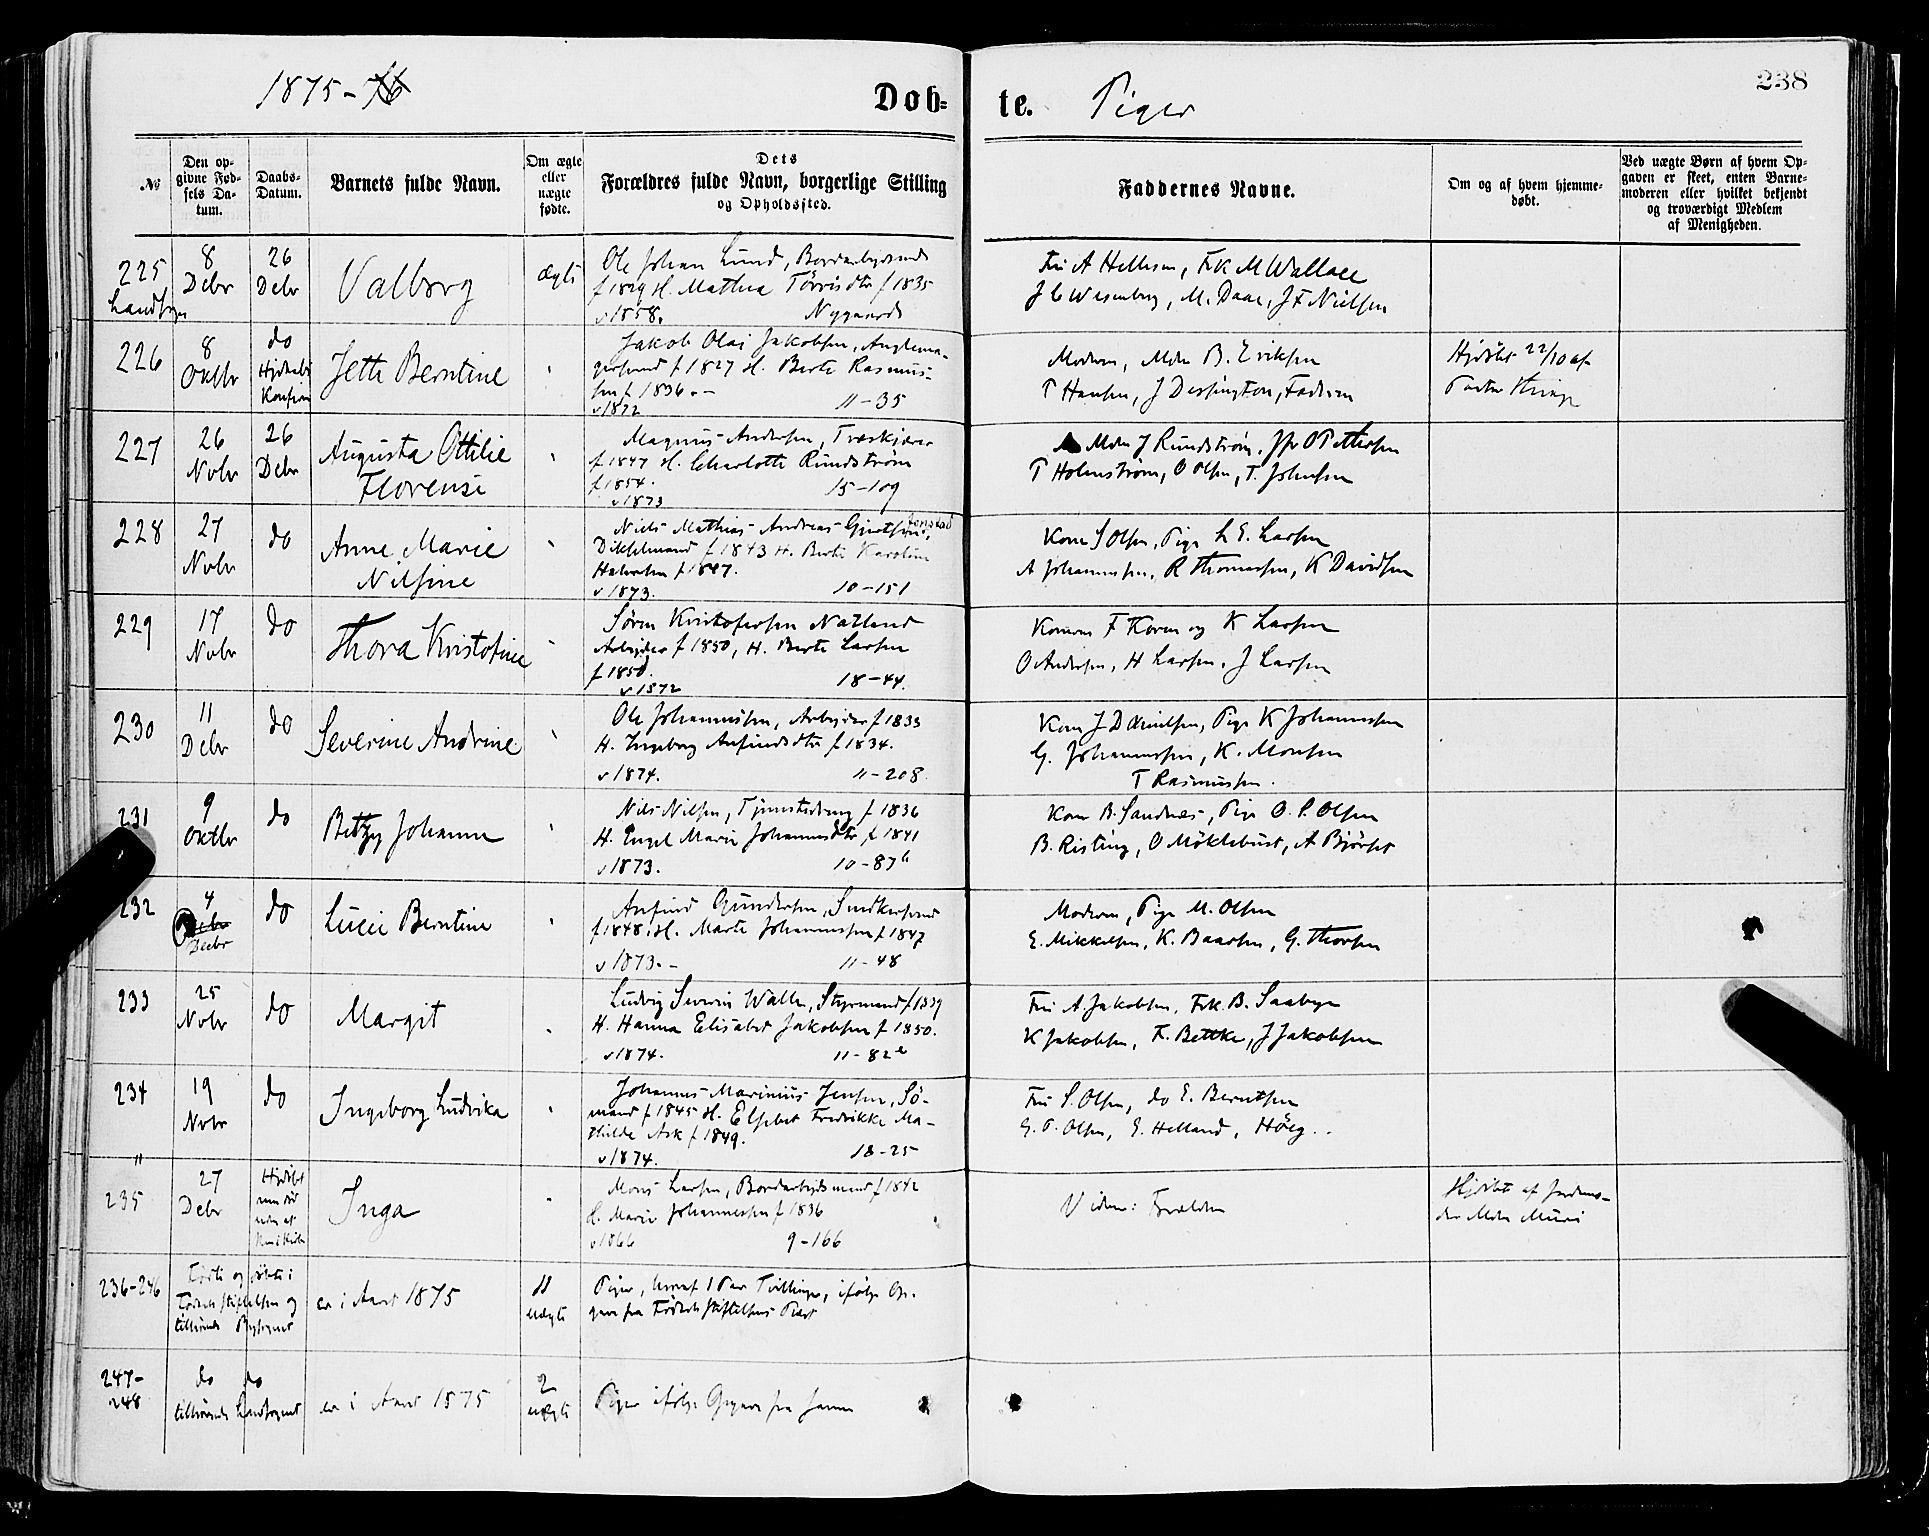 1875-76
Døb=
te. Piger
238
№
Den op-
givne Fød-
sels Da-
tum.
Daabs-
Datum.
Barnets fulde Navn.
Om ægte
eller
uægte
fødte.
Dets
Forældres fulde Navn, borgerlige Stilling
og Opholdssted.
Faddernes Navne.
Om og af hvem hjemme-
døbt.
Ved uægte Børn af hvem Op-
gaven er skeet, enten Barne-
moderen eller hvilket bekjendt
og troværdigt Medlem
af Menigheden.
225
Landsogn
8
Debr
26
Debr
Valborg
ægte
Ole Johan Lund, Bordarbejdsmd
f 1829 H. Mathea Tørrisdtr f 1835
v 1858. Nygaard
Fru A Hellesen, Frk M Wallace
J C Wesenberg, M. Daae, J F Nielsen
226
8
Oktbr
do
Jette Berntine
Jakob Olai Jakobsen,
f 1827 H. Berte Rasmus-
sen f 1836.-
v 1872 11-35
Moderen, Mdm B. Eriksen
T Hansen, J Dessington, Faderen
Hjdøbt 22/10 af
227
26
Novbr
26
Debr
Augusta Ottilie
Florense
Magnus Andersen, Træskjærer
f 1847 H. Charlotte Rundstrøm
f 1854. 15-109
v 1873
Mdm J Rundstrøm, Jfr O Pettersen
T Holmstrøm, O Olsen, T. Johnsen
228
27
Novbr
do
Anne Marie
Nilsine
Niels Mathias Andreas Giertsen,
f 1843 H. Berte Karoline
Halvorsen f 1847.
v 1873. 10-151
Kone S Olsen, Pige L E. Larsen
A Johannessen, R Thomassen, K Davidsen
229
17
Novbr
do
Thora Kristofine
Søren Kristofersen Natland
Arbejder f 1850, H. Berte Larsen
f 1850.
v 1872 18-44.
Konerne F Koren og K Larsen
O Andersen, H Larsen, J Larsen
230
11
Debr
do
Severine Andrine
Ole Johannessen, Arbejder f 1833
H. Ingeborg Anfindsdtr f 1834.
v 1874. 11-208
Kone J Danielsen, Pige K Johannessen
G. Johannessen, K. Monsen
T Rasmussen.
231
9
Oktbr
do
Betzy Johanne
Nils Nilsen, Tjenestedreng f 1836
H. Engel Marie Johannesdtr f 1841
v 1873. 10-87 b
Kone B. Sandnes, Pige O. P. Olsen
B. Risting, O Möklebust, A Bjørset
232
4
Decbr
do
Lucie Berntine
Anfind Gundersen, Snedkersvend
f 1848, H. Marte Johannessen f 1847
v 1873.- 11-48
Moderen, Pige M. Olsen
E. Mikkelsen, K. Baarsen, G. Thorsen
233
25
Novbr
do
Margit
Ludvig Severin Walle, Styrmand f 1839
H. Hanna Elisabet Jakobsen f 1850.
v 1874. 11-82 e
Fru A Jakobsen, Frk. B. Saabye
K Jakobsen, F. Bettke, J Jakobsen
234
19
Novbr
do
Ingeborg Ludvika
Johannes Marinius Jensen, Sø-
mand f 1845 H. Elsebet Fredrikke Ma-
thilde Ask f 1849.
v 1874. 18-25
Fru S. Olsen, do E. Berntsen
G. P. Olsen, E. Helland, Höeg..
"
235
27
Debr
Hjdøbt
Inga
Mons Larsen, Bordarbejdsmand f 1842
H. Marie Johannessen f 1836
v 1866 9-166
Vidner: Forældrene
Hjdøbt af Jordemo-
der Mdm
236-246
Fødte og døbte i
Fødselsstiftelsen og
tilhørende Bysognet
er i Aaret 1875
11
uægte
Piger, hvoraf 1 Par Tvillinger, ifølge Op-
gave fra Fødselsstiftelsens Præst
247-
248
do do
tilhørende Landsognet
er i Aaret 1875
2
uægte
Piger ifølge Opgave fra samme